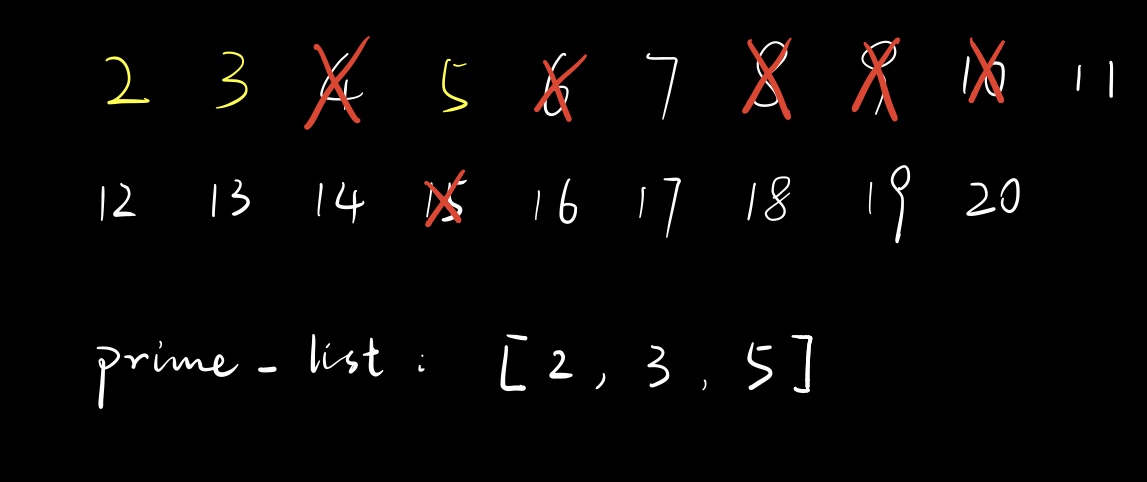 2 3 4 5 6 7 8 9 10 11
12 13 14 15 16 17 18 19 20
prime_list: [2, 3, 5]